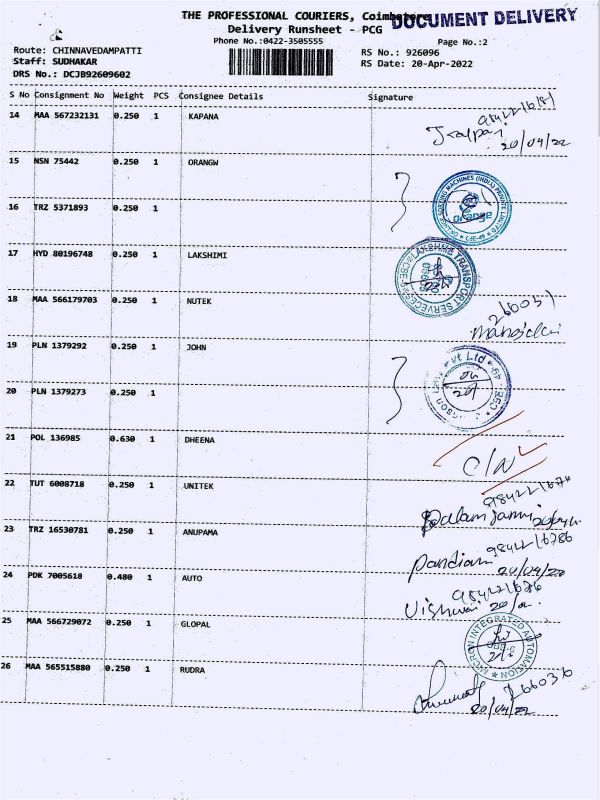 THE PROFESSIONAL COURIERS, Coimbatore
DOCUMENT DELIVERY
Delivery Runsheet - PCG
Phone No.:0422-3505555
Page No.:2
Route: CHINNAVEDAMPATTI
RS No.: 926096
Staff: SUDHAKAR
RS Date: 20-Apr-2022
DRS No.: DCJB92609602
S No Consignment No Weight PCS Consignee Details Signature
14 MAA 567232131 0.250 1 KAPANA
20/04/22
15 NSN 75442 0.250 1 ORANGW
orange
16 TRZ 5371893 0.250 1
17 HYD 80196748 0.250 1 LAKSHIMI
18 MAA 566179703 0.250 1 NUTEK
19 PLN 1379292 0.250 1 JOHN
20 PLN 1379273 0.250 1
21 POL 136985 0.630 1 DHEENA
C/N
22 TUT 6008718 0.250 1 UNITEK
23 TRZ 16530781 0.250 1 ANUPAMA
Pandian 20/04/22
24 PDK 7005618 0.480 1 AUTO
25 MAA 566729072 0.250 1 GLOPAL
MICRON INTEGRATED AUTOMATION
26 MAA 565515880 0.250 1 RUDRA
20/04/22